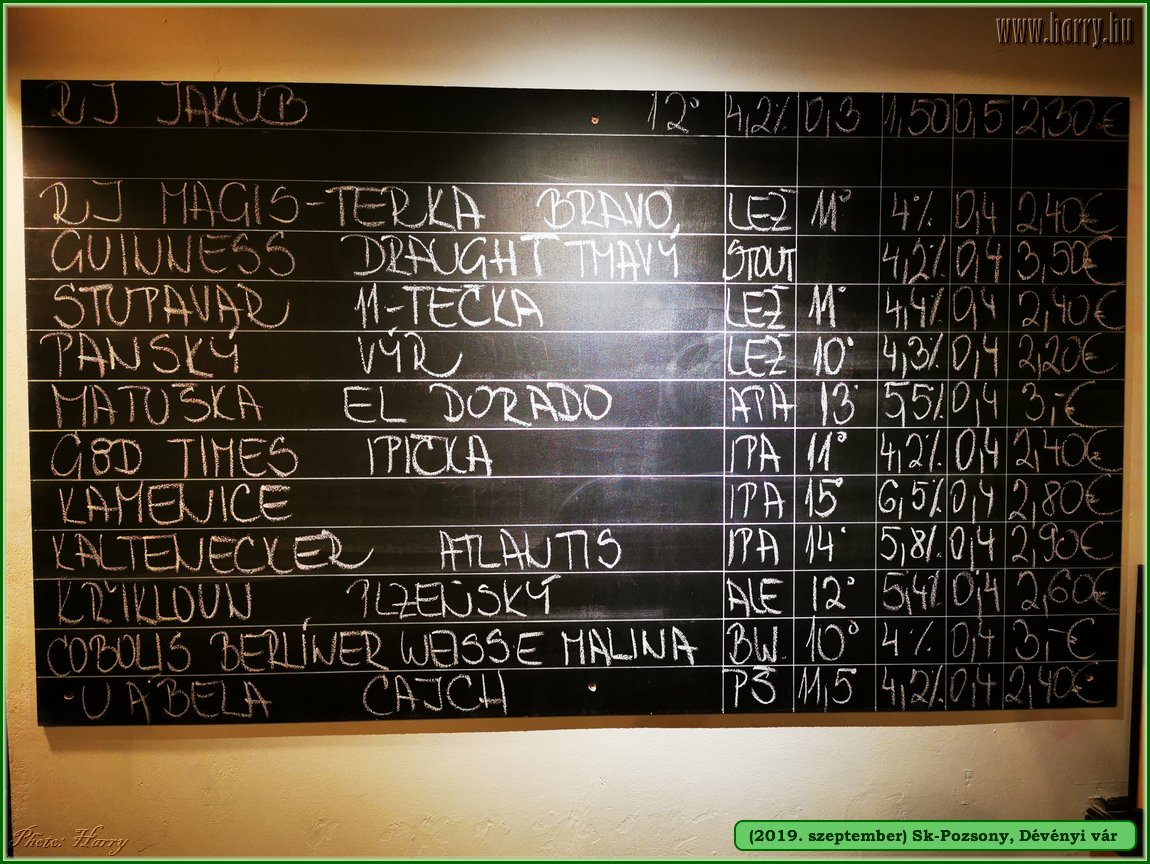 www.harry.hu
RJ JAKUB 12° 4,2% 0,3 1,50 0,5 2,30€
RJ MAGIS-TERKA BRAVO LEŽ 11° 4% 0,4 2,40€
GUINNESS DRAUGHT TMAVÝ STOUT 4,2% 0,4 3,50€
STUPAVAR 11-TEČKA LEŽ 11° 4,4% 0,4 2,40€
PANSKÝ VÝR LEŽ 10° 4,3% 0,4 2,20€
MATUŠKA EL DORADO APA 13° 5,5% 0,4 3,-€
G8D TIMES IPIČKA IPA 11° 4,2% 0,4 2,40€
KAMENICE IPA 15° 6,5% 0,4 2,80€
KALTENECKER ATLANTIS IPA 14° 5,8% 0,4 2,90€
KRYKLOUN PLZEŇSKÝ ALE 12° 5,4% 0,4 2,60€
COBOLIS BERLÍNER WEISSE MALINA BW 10° 4% 0,4 3,-€
CAJCH PŠ 11,5 4,2% 0,4 2,40€
Photo: Harry
(2019. szeptember) Sk-Pozsony, Dévényi vár